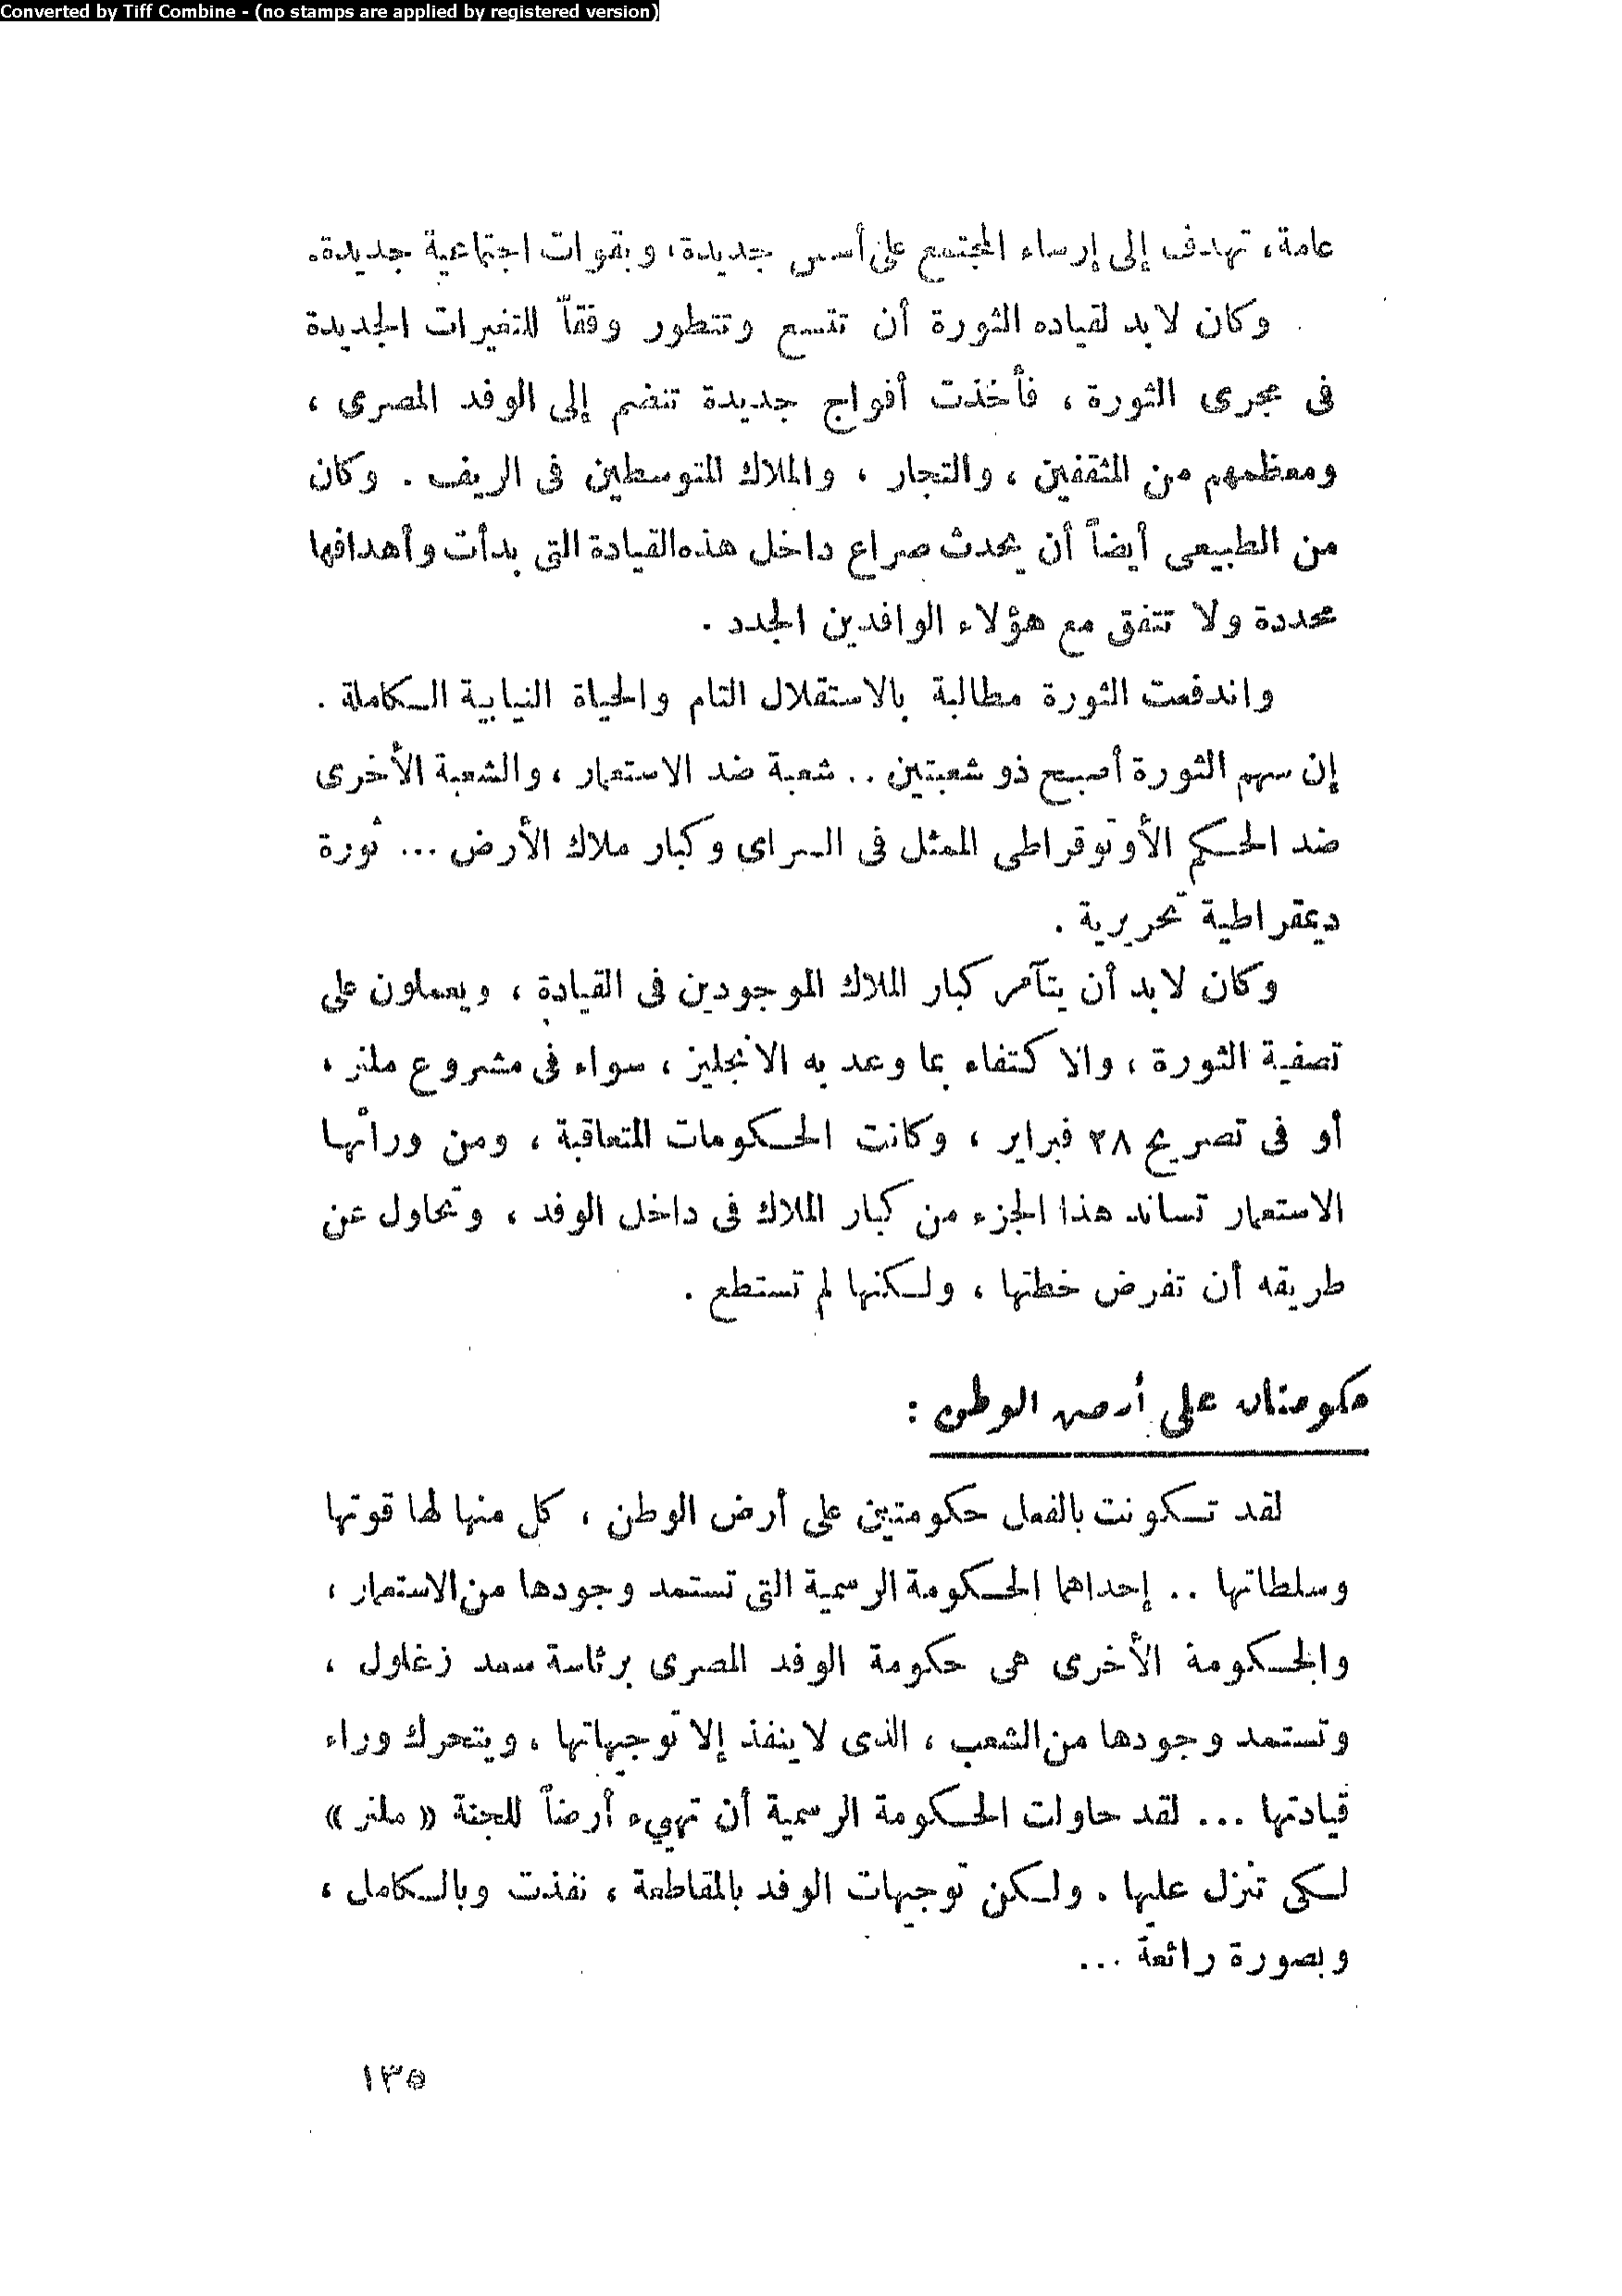 Converted by Tiff Combine - (no stamps are applied by registered version)
عامة، تهدف إلى إرساء المجتمع على أسس جديدة، وبقوات اجتماعية جديدة.
وكان لابد لقياده الثورة أن تتسع وتتطور وفقاً للتغيرات الجديدة
فى مجرى الثورة ، فأخذت أفواج جديدة تنضم إلى الوفد المصرى ،
ومعظمهم من المثقفين ، والتجار ، والملاك المتوسطين فى الريف . وكان
من الطبيعى أيضاً أن يحدث صراع داخل هذه القيادة التى بدأت وأهدافها
محددة ولا تتفق مع هؤلاء الوافدين الجدد .
واندفعت الثورة مطالبة بالاستقلال التام والحياة النيابية الكاملة .
إن سهم الثورة أصبح ذو شعبتين .. شعبة ضد الاستعمار ، والشعبة الأخرى
ضد الحكم الأوتوقراطى الممثل فى السراى وكبار ملاك الأرض ... ثورة
ديمقراطية تحريرية .
وكان لابد أن يتآمر كبار الملاك الموجودين فى القيادة ، ويعملون على
تصفية الثورة ، والاكتفاء بما وعد به الانجليز ، سواء فى مشروع ملنر ،
أو فى تصريح ٢٨ فبراير ، وكانت الحكومات المتعاقبة ، ومن ورائها
الاستعمار تساند هذا الجزء من كبار الملاك فى داخل الوفد ، وتحاول عن
طريقه أن تفرض خطتها ، ولكنها لم تستطع .
حكومتان على أرض الوطن :
لقد تكونت بالفعل حكومتين على أرض الوطن ، كل منها لها قوتها
وسلطاتها .. إحداهما الحكومة الرسمية التى تستمد وجودها من الاستعمار ،
والحكومة الأخرى هى حكومة الوفد المصرى برئاسة سعد زغلول ،
وتستمد وجودها من الشعب ، الذى لا ينفذ إلا توجيهاتها ، ويتحرك وراء
قيادتها ... لقد حاولت الحكومة الرسمية أن تهيىء أرضاً للجنة « ملنر »
لكى تنزل عليها . ولكن توجيهات الوفد بالمقاطعة ، نفذت وبالكامل ،
وبصورة رائعة ...
١٣٥